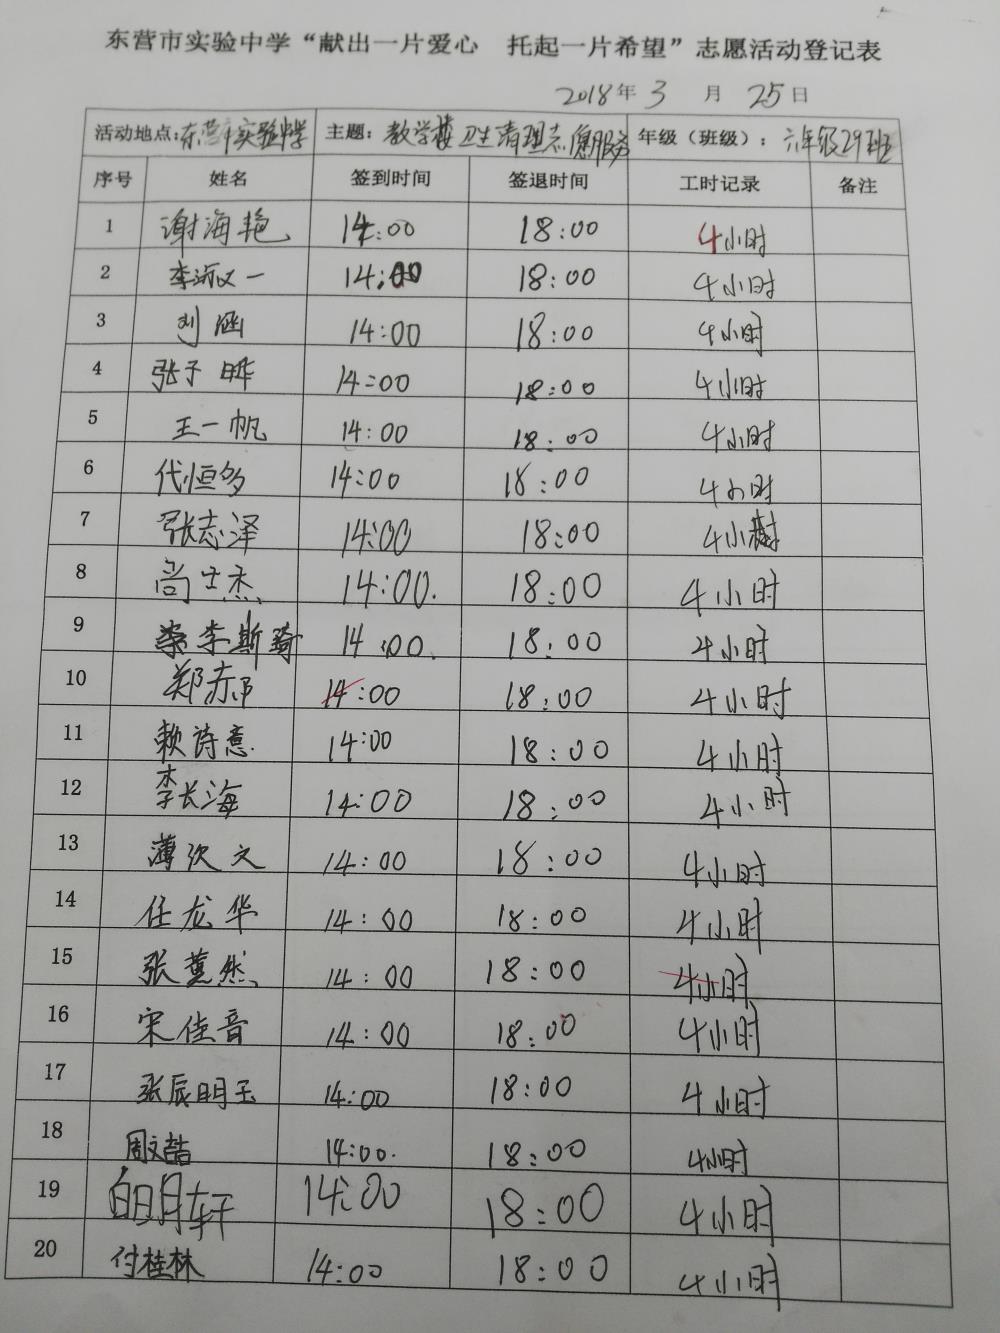 东营市实验中学“献出一片爱心 托起一片希望”志愿活动登记表
2018年3月25日
活动地点:东营市实验中学 主题:教学楼卫生清理志愿服务 年级(班级):六年级29班
序号 姓名 签到时间 签退时间 工时记录 备注
1 谢海艳 14:00 18:00 4小时
2 李一 14:00 18:00 4小时
3 刘涵 14:00 18:00 4小时
4 张子晔 14=00 18:00 4小时
5 王一帆 14:00 18:00 4小时
6 代恒多 14:00 18:00 4小时
7 张志泽 14:00 18:00 4小时
8 尚士杰 14:00. 18:00 4小时
9 李斯琦 14:00. 18:00 4小时
10 郑赤 14:00 18:00 4小时
11 赖诗意 14:00 18:00 4小时
12 李长海 14:00 18:00 4小时
13 薄次文 14:00 18:00 4小时
14 任龙华 14:00 18:00 4小时
15 张蕙然 14:00 18:00 4小时
16 宋佳音 14:00 18:00 4小时
17 张辰明玉 14:00 18:00 4小时
18 周文喆 14:00. 18:00 4小时
19 白明轩 14:00 18:00 4小时
20 付桂林 14:00 18:00 4小时